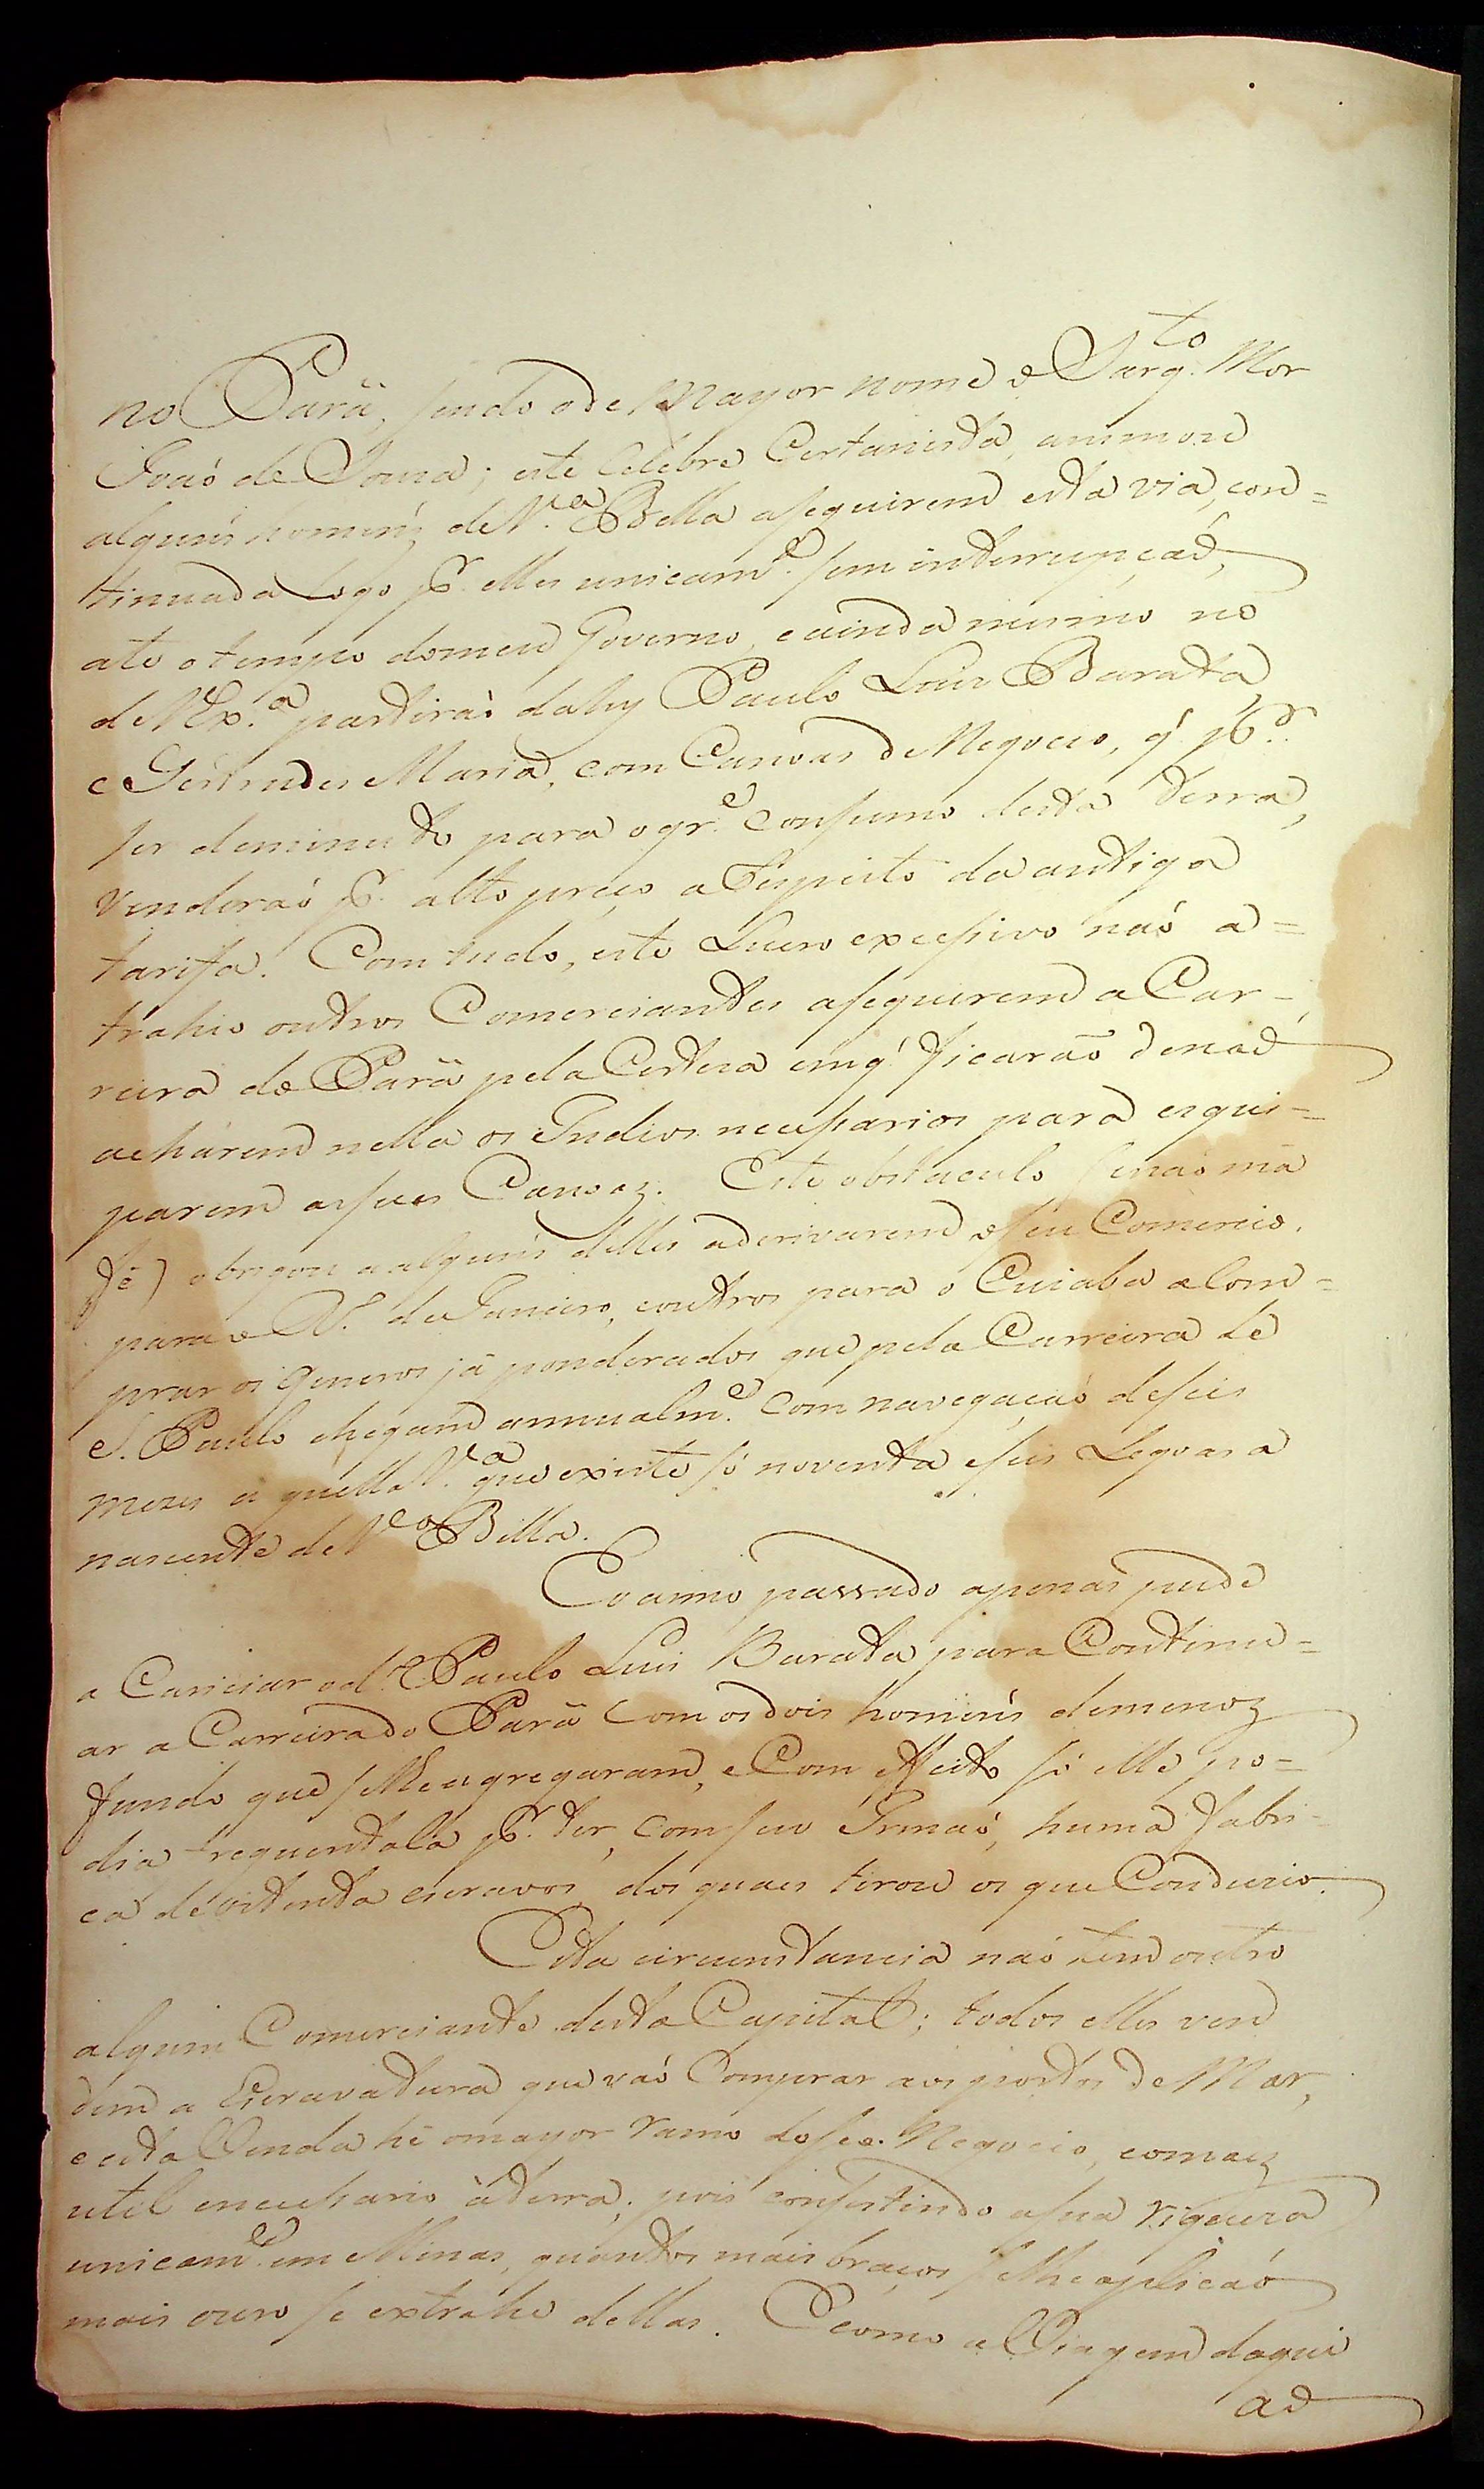 no Parâ, sendo o de Mayor nome o Sarg.to Mor
Joaó de Souza; este Celebre Certanista, animou
alguns homens de V.a Bella aseguirem esta via, con=
tinuada Logo pr. elles unicam.e sem interrupçaõ,
ate o tempo domeu Governo, eainda mesmo no
de VEx.a partiraó dahy Paulo Luiz Barata,
e Gertrudes Maria, com Canoas de Negocio, q' pr.
ser deminuto para ogr.e consumo desta terra,
venderaó pr. alto preço a Respeito da antiga
tarifa. Com tudo, este Lucro excesivo naó a=
trahio outros Comerciantes aseguirem a Car-
reira do Parâ pela Certeza emq' ficaraõ denaõ
acharem nella os Indios necesarios para esqui=
parem assuas Canoaz. Este obstaculo (senaó mâ
fé) obrigou a alguns delles aderivarem oseu Comercio
para o R. de Janeiro, eoutros para o Cuiaba a Com=
prar os generos jâ ponderados que pela Carreira de
S. Paulo chegam annualm.e com navegaçaó deseis
mezes a quella V.a que existe só noventa eseis Legoas a
nascente de V.a Bella.
Eo anno passado apenas pude
a Cariciar od.o Paulo Luis Barata para Continu=
ar a Carreira do Parâ com os dois homens demenoz
fundo que selhe agregaram, e Com effeito só elle po=
dia frequentala pr. ter, com seu Irmaó, huma fabri=
ca de oitenta escravos, dos quais tirou os que Conduzio.
Esta circunstancia naó tem outro
algum Comerciante desta Capital; todos elles ven
dem a Escravatura que vaó Comprar aos portos de Mar,
e esta Venda hé omayor ramo doseu Negocio, eomaiz
util enecesario àterra; pois consistindo asua riqueza
unicam.e em Minas, quantos mais braços selhe aplicaó
mais ouro se extrahe dellas. Ecomo a Viagem daqui
ao